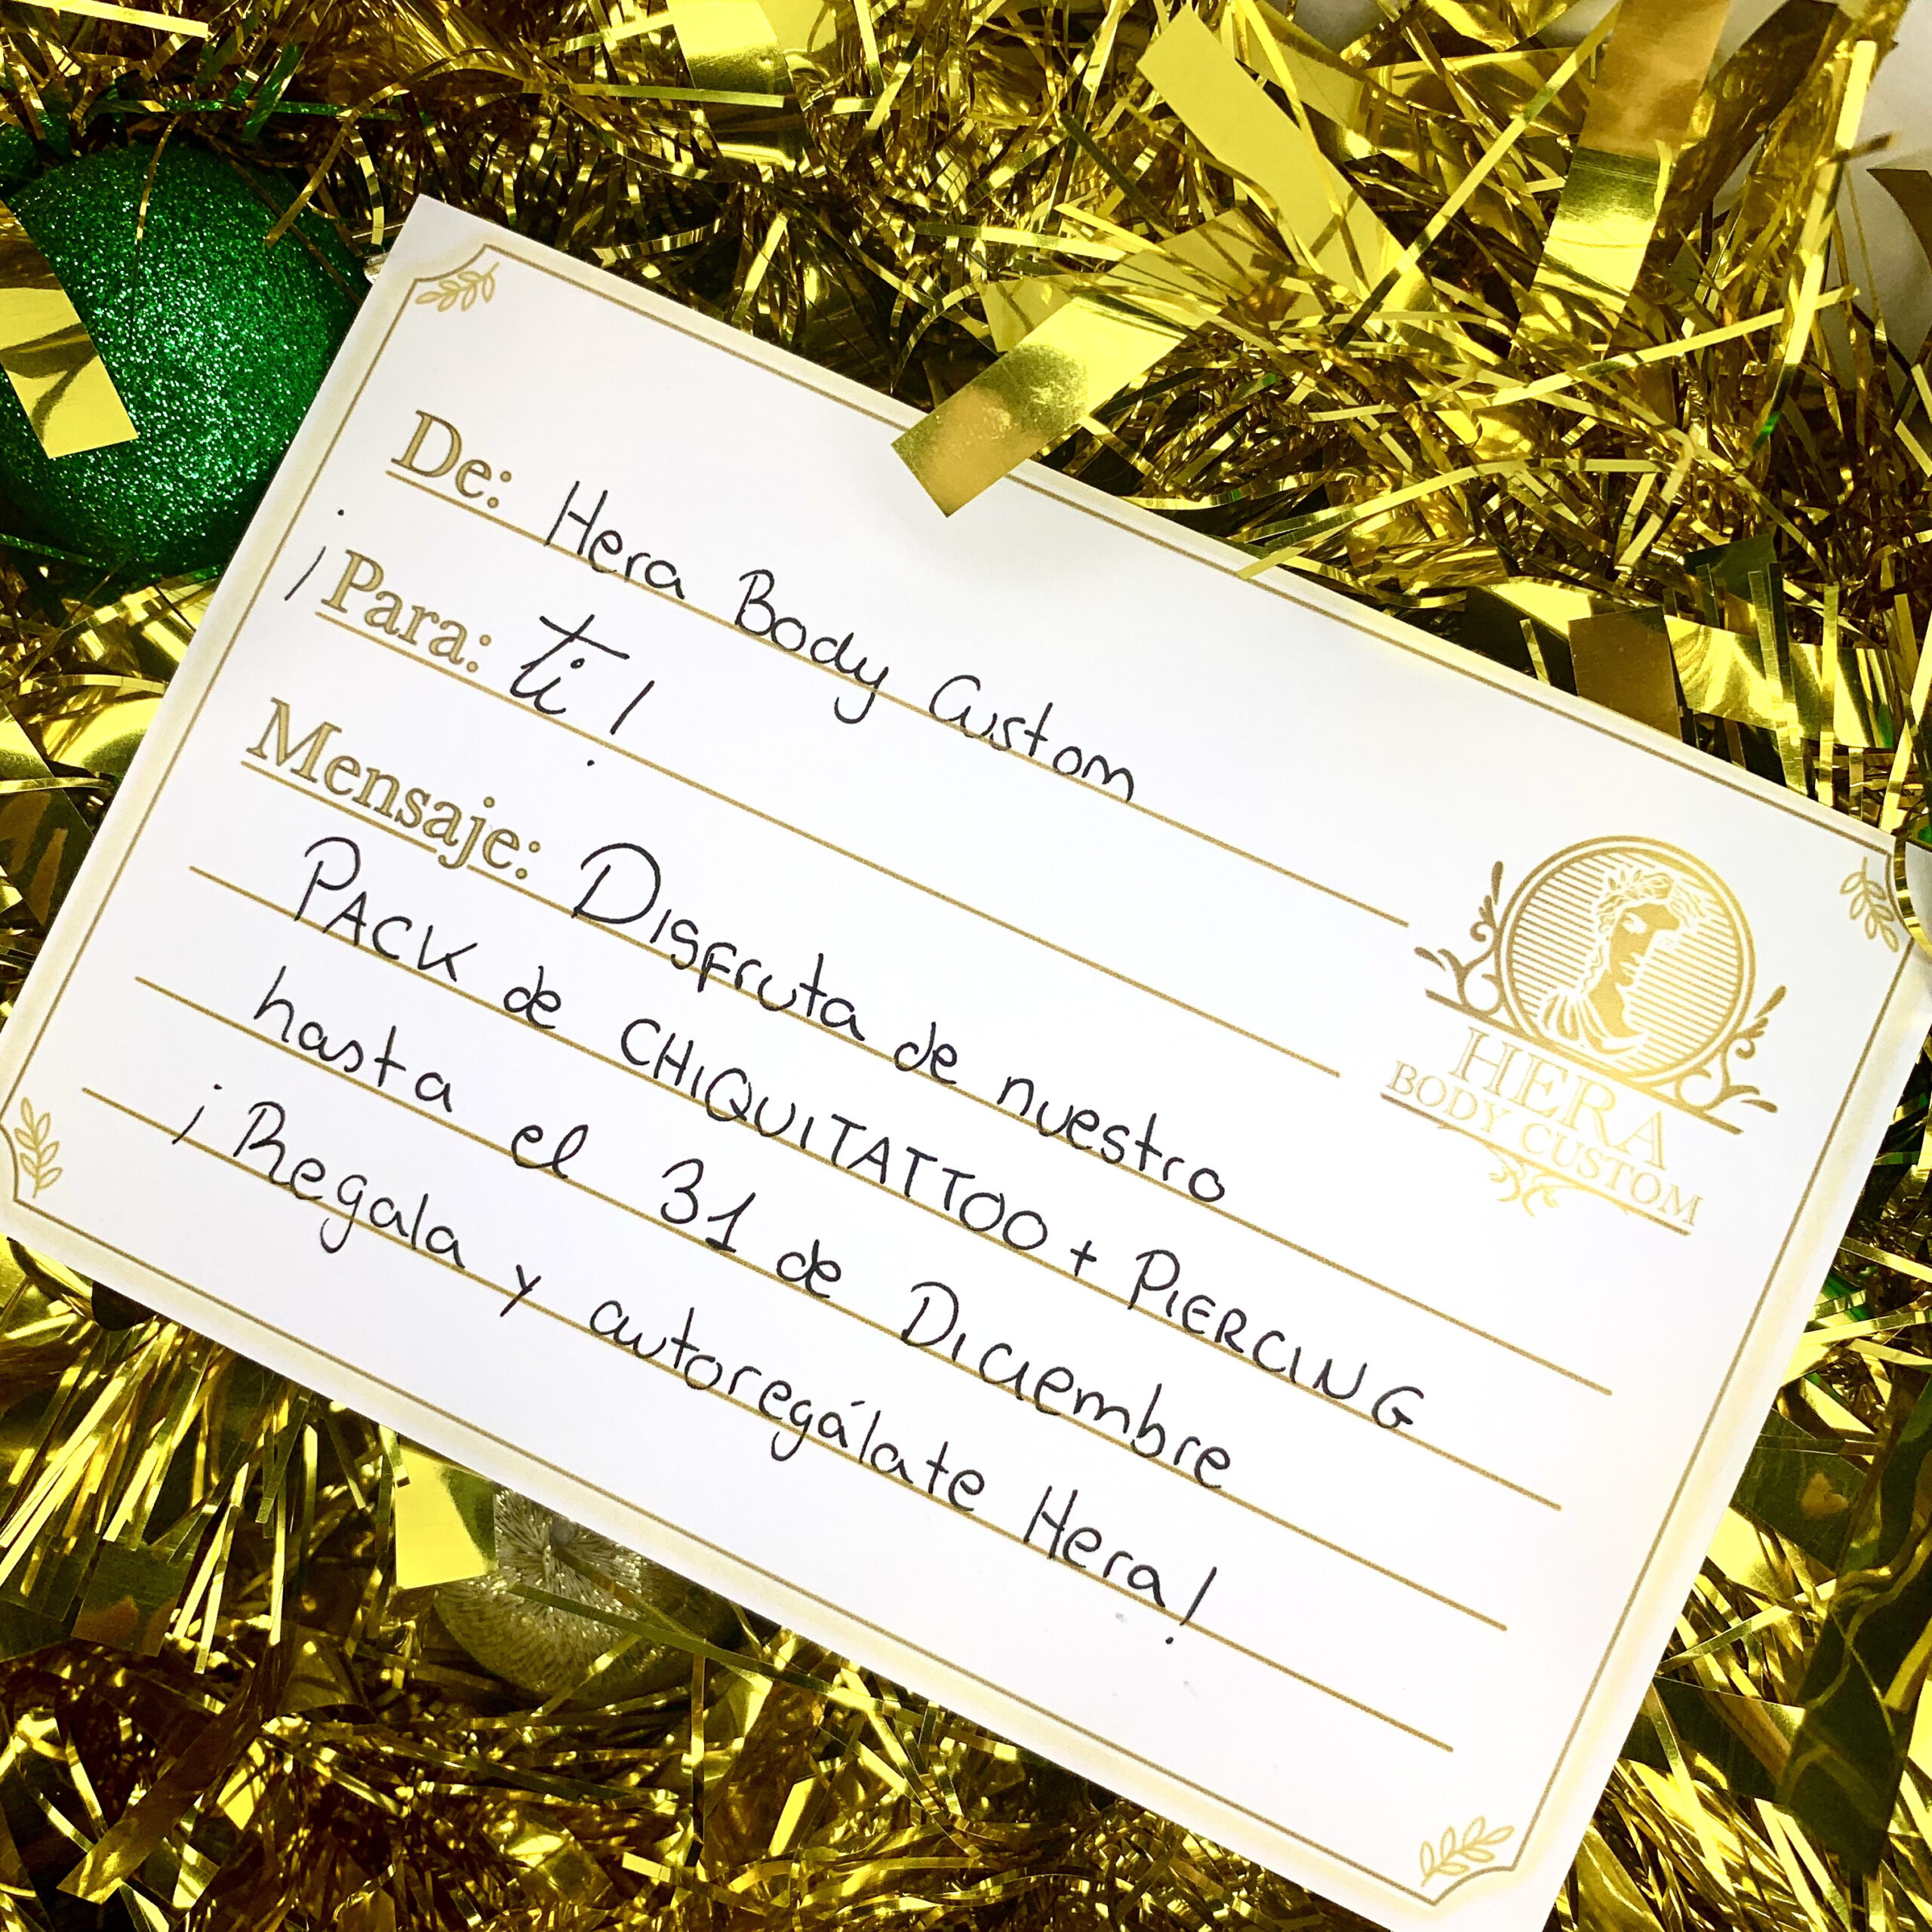 De: Hera Body Custom
¡Para: ti!
Mensaje: Disfruta de nuestro
PACK de CHIQUITATTOO + PIERCING
hasta el 31 de Diciembre
¡Regala y autoregálate Hera!
HERA
BODY CUSTOM